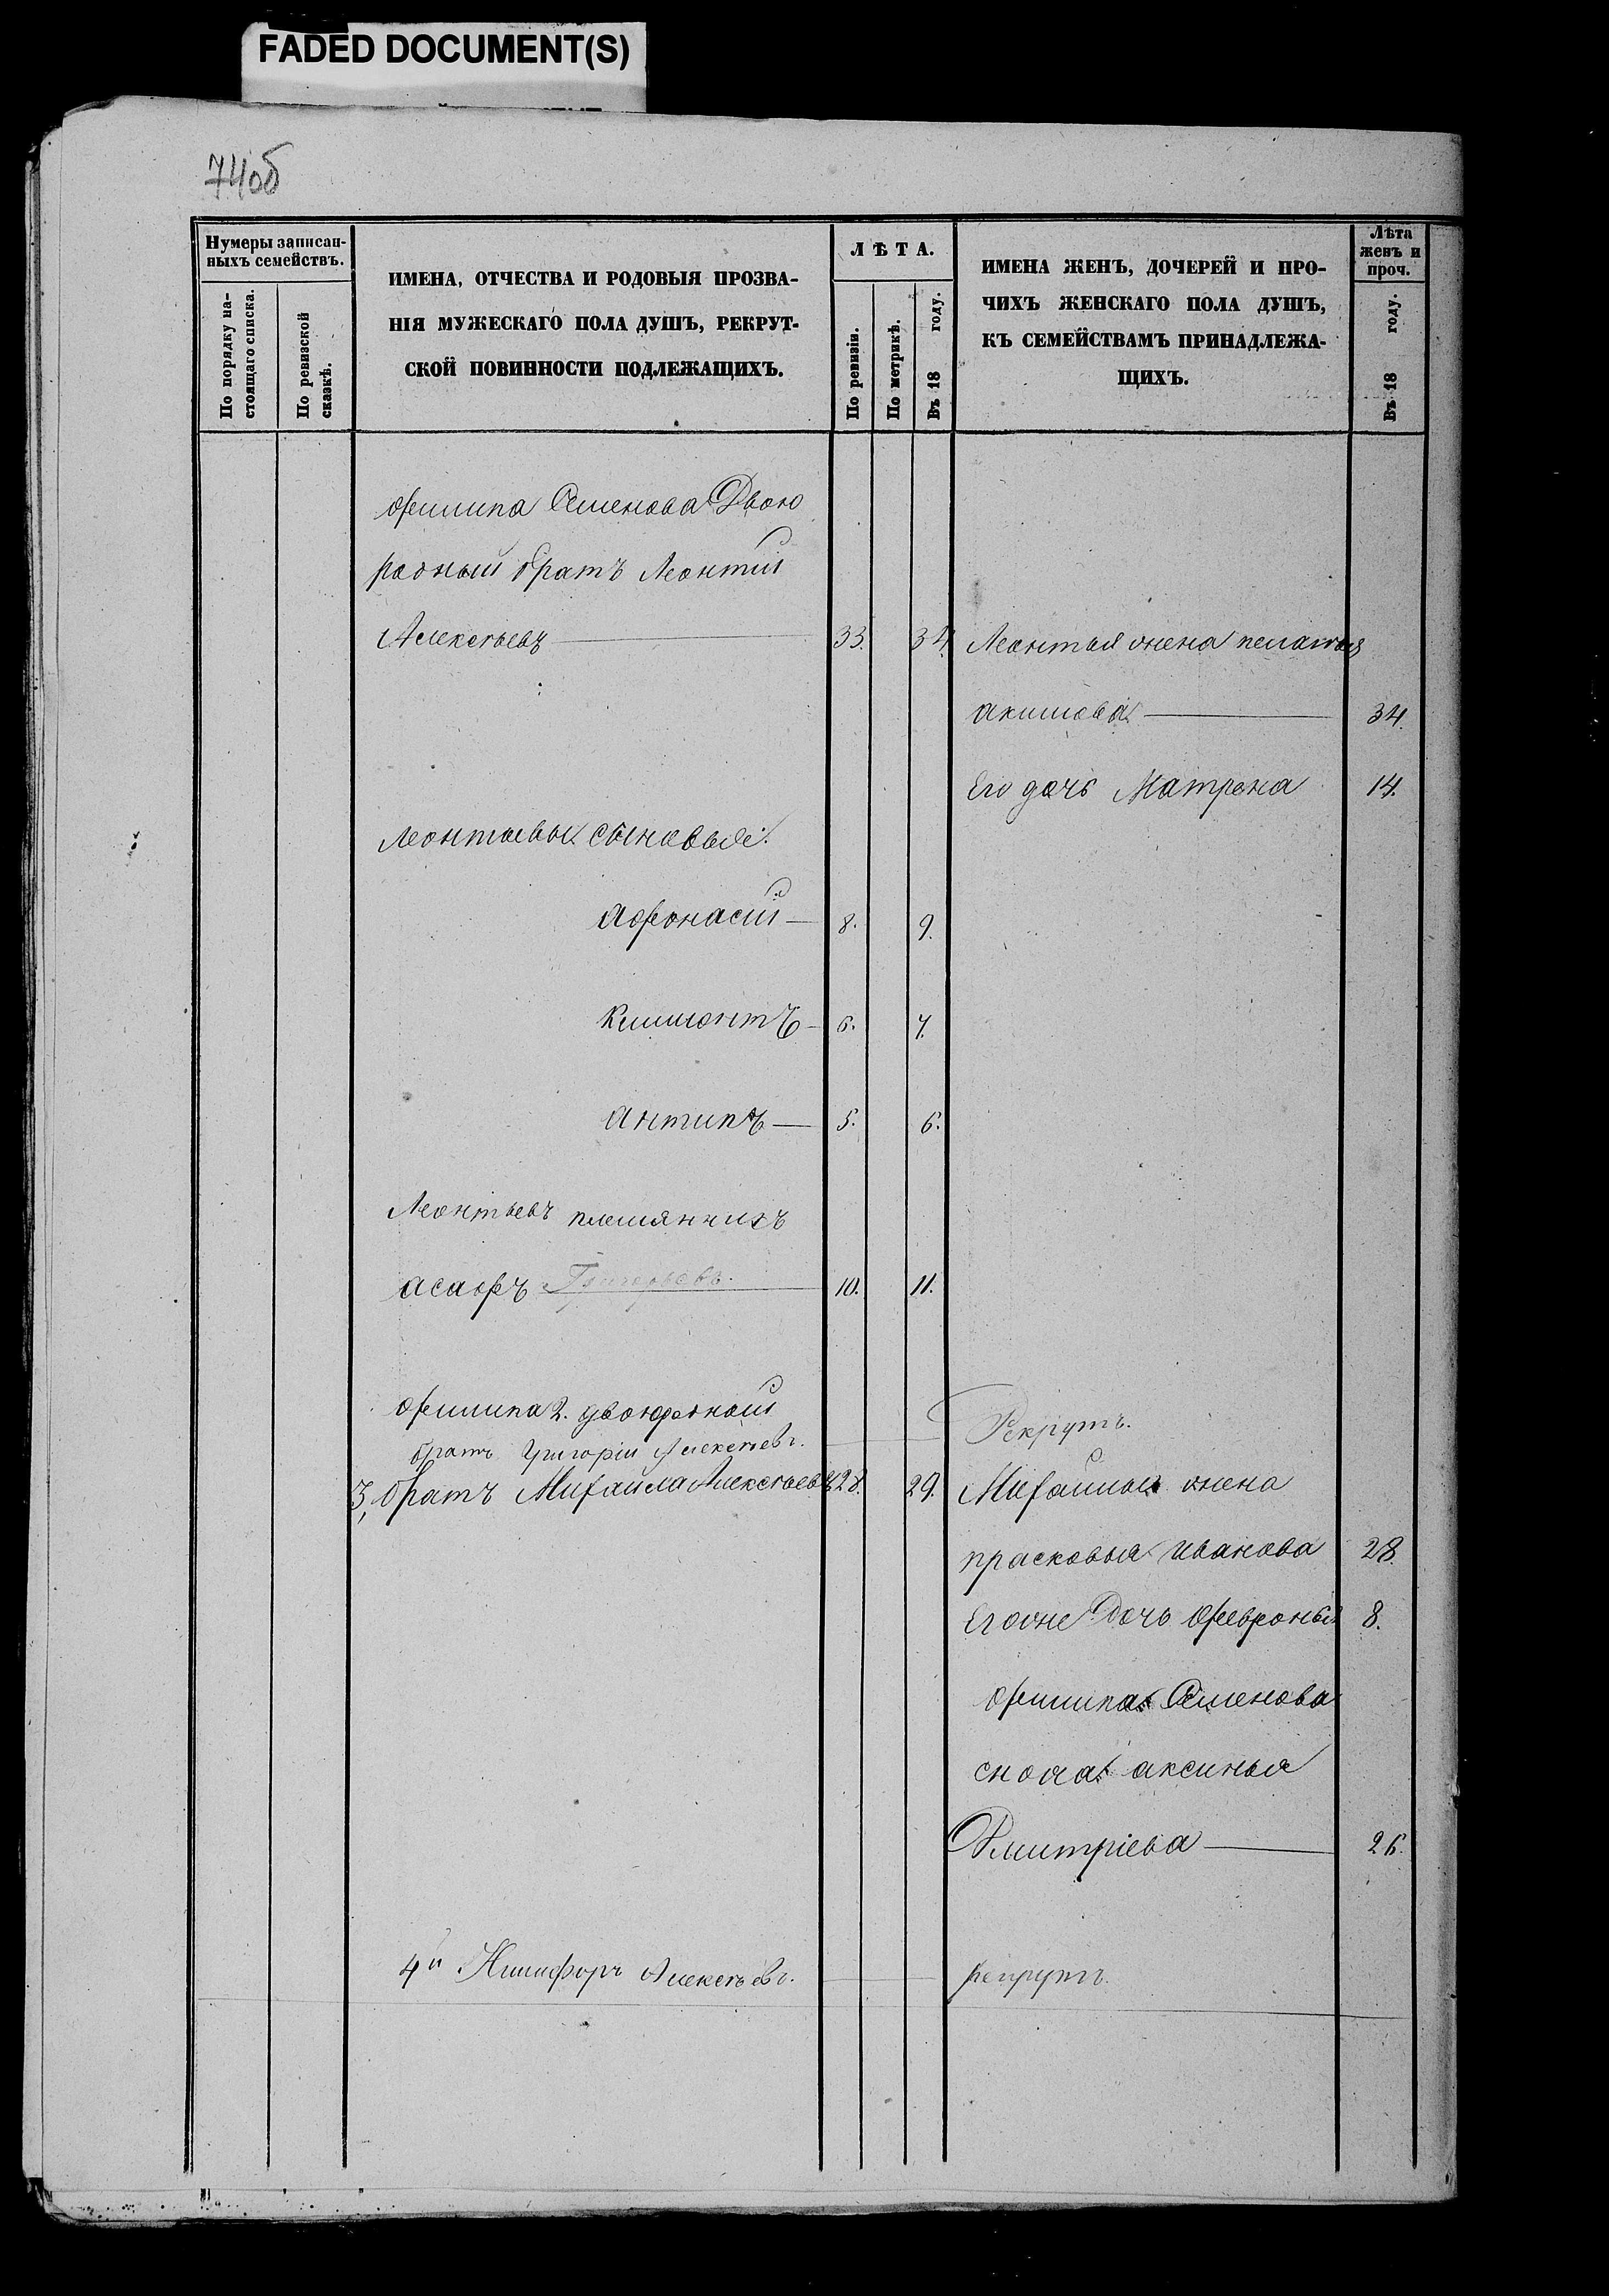 FADED DOCUMENT(S)
74об
Нумеры записан-
ныхъ семействъ.
По порядку на-
стоящаго списка.
По ревизской
сказкѣ.
ИМЕНА, ОТЧЕСТВА И РОДОВЫЯ ПРОЗВА-
НІЯ МУЖЕСКАГО ПОЛА ДУШЪ, РЕКРУТ-
СКОЙ ПОВИННОСТИ ПОДЛЕЖАЩИХЪ.
ЛѢТА.
По ревизіи.
По метрикѣ.
Въ 18 году.
ИМЕНА ЖЕНЪ, ДОЧЕРЕЙ И ПРО-
ЧИХЪ ЖЕНСКАГО ПОЛА ДУШЪ,
КЪ СЕМЕЙСТВАМЪ ПРИНАДЛЕЖА-
ЩИХЪ.
Лѣта
женъ и
проч.
Въ 18 году.
Филипа Семенова Двою
родный братъ Леонтій
Алексѣевъ 33. 34. Леонтья жена пелагѣя
акимова 34.
Его дочь Матрена 14.
Леонтьевы сыновья:
Афонасій 8. 9.
Климонтъ 6. 7.
антипъ 5. 6.
Леонтьевъ племянникъ
асафъ Григорьевъ. 10. 11.
Филипа 2. двоюродный
братъ Григорій Алексѣевъ. Рекрутъ.
3, братъ Михайла Алексѣевъ 28. 29. Михайлы жена
прасковья иванова 28.
Егоже Дочь Февронья 8.
Филипа Семенова
сноха аксинья
Дмитріева 26.
4й Никифоръ Алексѣевъ. рекрутъ.